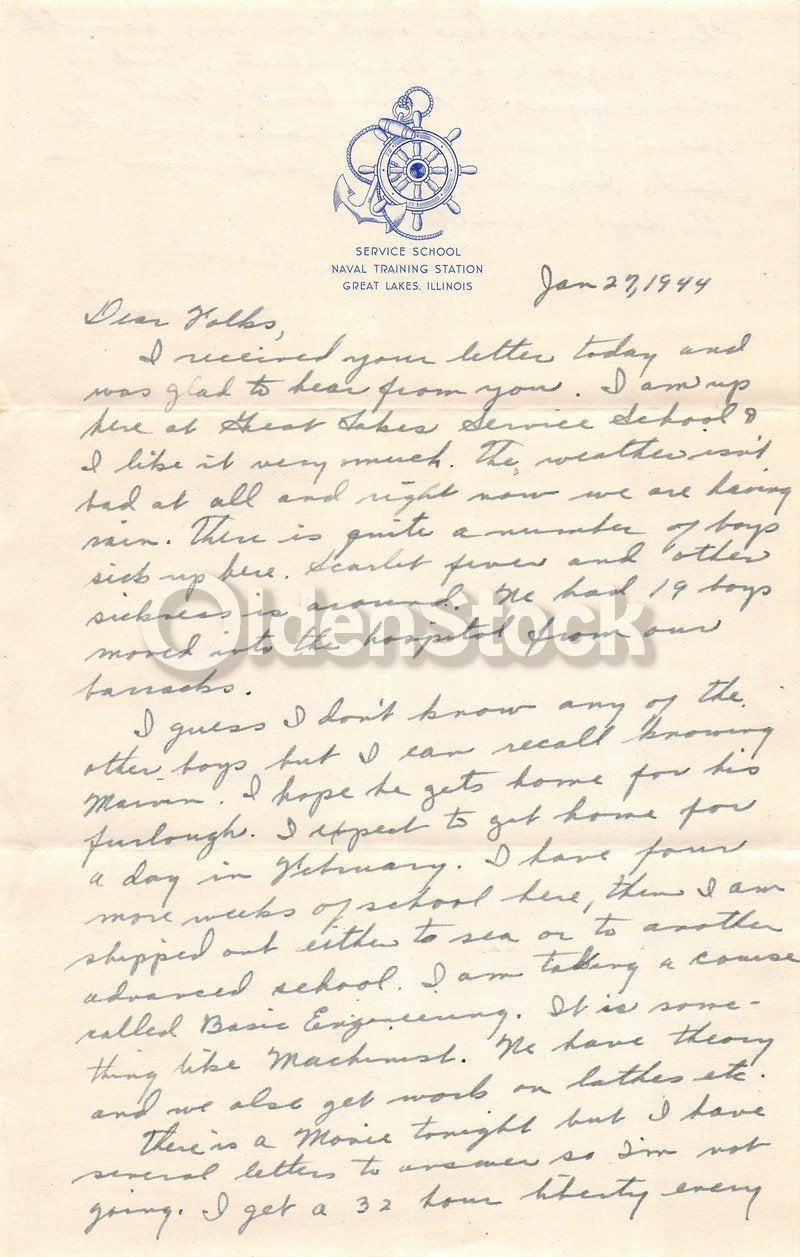 SERVICE SCHOOL
NAVAL TRAINING STATION
GREAT LAKES, ILLINOIS
Jan 27, 1944
Dear Folks,
I received your letter today and
was glad to hear from you. I am up
here at Great Lakes Service School &
I like it very much. The weather isn't
bad at all and right now we are having
rain. There is quite a number of boys
sick up here. Scarlet fever and other
sickness is around. We had 19 boys
moved into the hospital from our
barracks.
OldenStock
I guess I don't know any of the
other boys but I can recall knowing
Marvin. I hope he gets home for his
furlough. I expect to get home for
a day in February. I have four
more weeks of school here, then I am
shipped out either to sea or to another
advanced school. I am taking a course
called Basic Engineering. It is some-
thing like Machinist. We have theory
and we also get work on lathes etc.
There is a Movie tonight but I have
several letters to answer so I'm not
going. I get a 32 hour liberty every